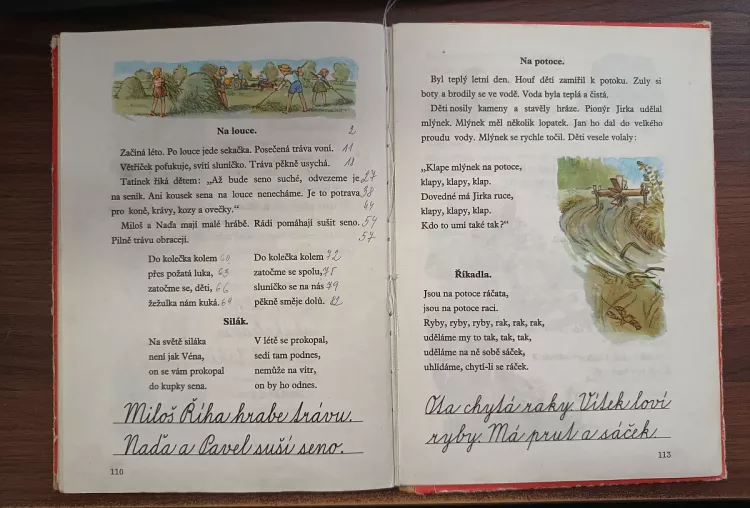 Na louce. 2
Začíná léto. Po louce jede sekačka. Posečená tráva voní. 11
Větříček pofukuje, svítí sluníčko. Tráva pěkně usychá. 18
Tatínek říká dětem: „Až bude seno suché, odvezeme je 27
na seník. Ani kousek sena na louce nenecháme. Je to potrava 38
pro koně, krávy, kozy a ovečky.“ 44
Miloš a Naďa mají malé hrábě. Rádi pomáhají sušit seno. 54
Pilně trávu obracejí. 57
Do kolečka kolem 60
přes požatá luka, 63
zatočme se, děti, 66
žežulka nám kuká. 69
Do kolečka kolem 72
zatočme se spolu, 75
sluníčko se na nás 79
pěkně směje dolů. 82
Silák.
Na světě siláka
není jak Véna,
on se vám prokopal
do kupky sena.
V létě se prokopal,
sedí tam podnes,
nemůže na vítr,
on by ho odnes.
Miloš Říha hrabe trávu.
Naďa a Pavel suší seno.
110
Na potoce.
Byl teplý letní den. Houf dětí zamířil k potoku. Zuly si
boty a brodily se ve vodě. Voda byla teplá a čistá.
Děti nosily kameny a stavěly hráze. Pionýr Jirka udělal
mlýnek. Mlýnek měl několik lopatek. Jan ho dal do velkého
proudu vody. Mlýnek se rychle točil. Děti vesele volaly:
„Klape mlýnek na potoce,
klapy, klapy, klap.
Dovedné má Jirka ruce,
klapy, klapy, klap.
Kdo to umí také tak?“
Říkadla.
Jsou na potoce ráčata,
jsou na potoce raci.
Ryby, ryby, ryby, rak, rak, rak,
uděláme my to tak, tak, tak,
uděláme na ně sobě sáček,
uhlídáme, chytí-li se ráček.
Ota chytá raky. Vítek loví
ryby. Má prut a sáček.
113